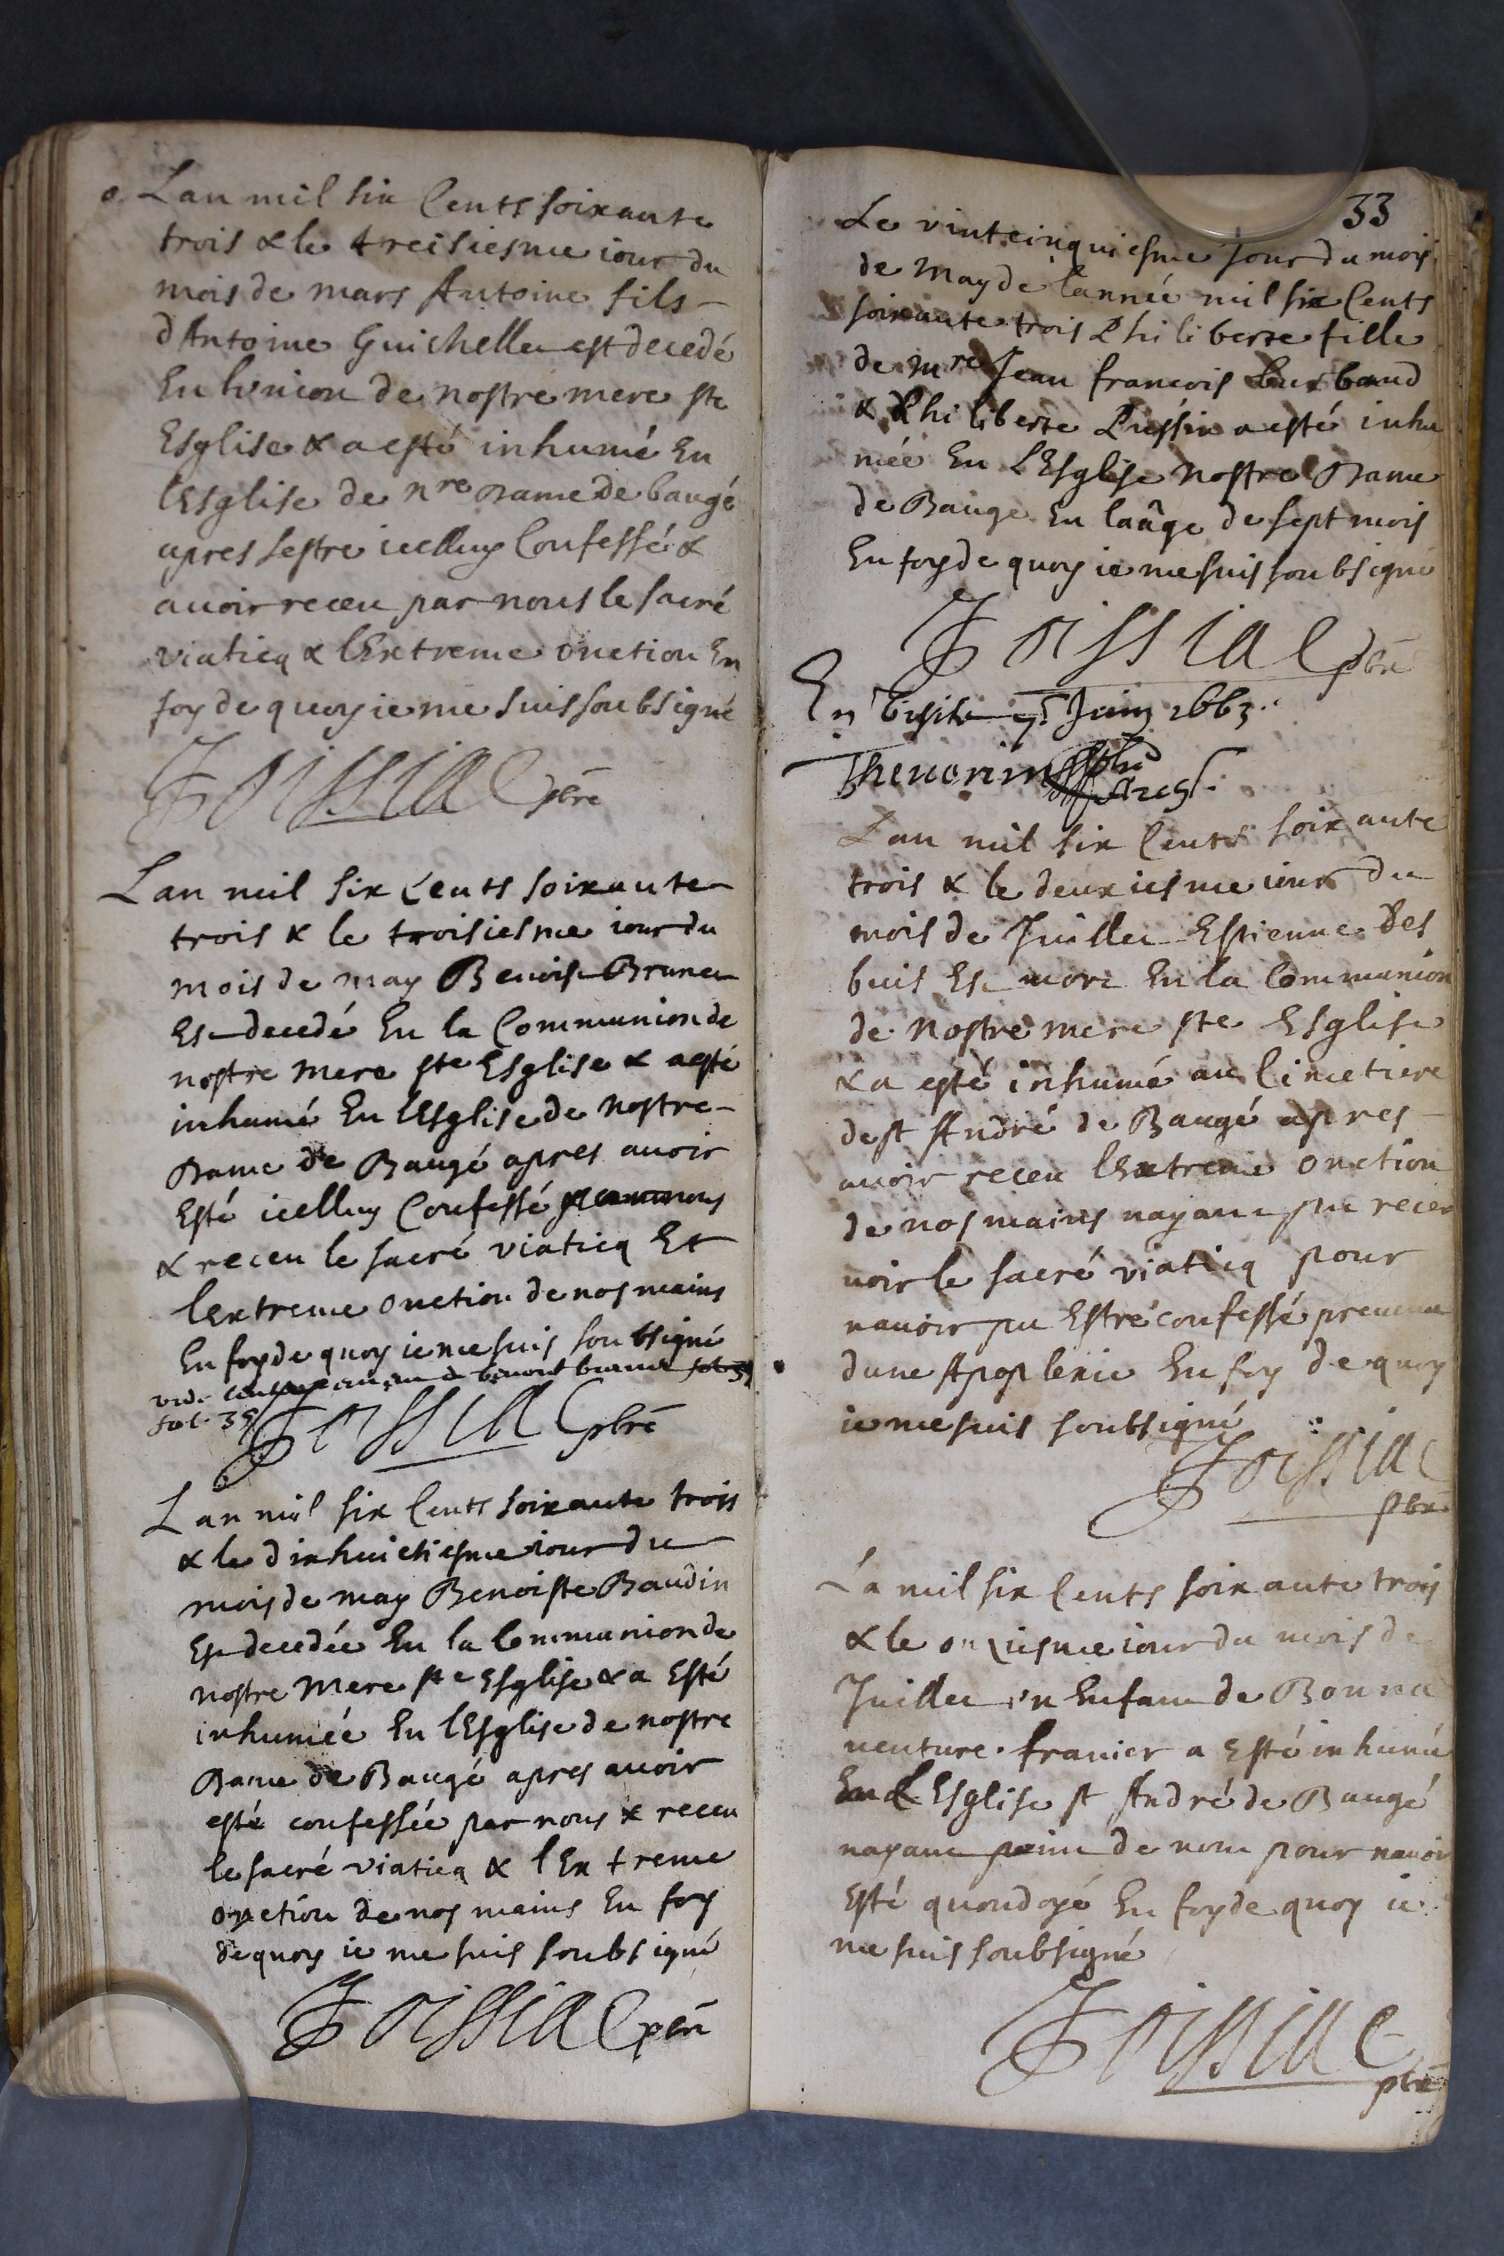 Lan mil six Cents soixante
trois & le treisiesme iour du
mois de mars Antoine fils
dAntoine Guichellet est decedé
En lvnion de nostre mere ste
Esglise & a esté inhumé En
lEsglise de nre Dame de baugé
apres sestre icelluy Confessé &
auoir receu par nous le sacré
viaticq & lExtreme onction En
foy de quoy ie me suis soubsigné
Joissia pbre
Lan mil six Cents soixante
trois & le troisiesme iour du
mois de may Benoist Brunet
Est decedé En la Communion de
nostre mere ste Esglise & a esté
inhumé En lEsglise de nostre
Dame de Baugé apres auoir
Esté icelluy Confessé nous
& receu le sacré viaticq Et
lExtreme onction de nos mains
En foy de quoy ie me suis soubsigné
vide benoit brunet
fol. 35
Joissia pbre
Lan mil six Cents soixante trois
& le dixhuictiesme iour du
mois de may Benoiste Baudin
Est decedée En la Communion de
nostre Mere ste Esglise & a Esté
inhumée En lEsglise de nostre
Dame de Baugé apres auoir
esté confessée par nous & receu
le sacré viaticq & lExtreme
onction de nos mains En foy
de quoy ie me suis soubsigné
Joissia pbre
33
Le vinteinquiesme Jour du mois
de May de lannée mil six Cents
soixante trois Philiberte fille
de mre Jean francois Burbaud
& Philiberte Pussin a esté inhu
mée En LEsglise nostre Dame
de Bauge En laâge de sept mois
En foy de quoy ie me suis soubsigné
Joissia pbre
En Visite Juin 1663.
Thenorin
Lan mil six Cents soixante
trois & le deuxiesme iour du
mois de Juillet Estienne Des
buis Est mort En la Communion
de nostre mere ste Esglise
& a esté inhumé au Cimetiere
de st André de Baugé apres
auoir receu lExtreme onction
de nos mains nayant pu rece
uoir le sacré viaticq pour
nauoir pu Estre confessé preuenu
dune Apoplexie En foy de quoy
ie me suis soubsigné
Joissia
pbre
La mil six Cents soixante trois
& le onziesme iour du mois de
Juillet vn Enfant de Bonna
uenture franier a Esté inhumé
En L Esglise st André de Baugé
nayant point de nom pour nauoir
Esté quondoyé En foy de quoy ie
me suis soubsigné
Joissia
pbre